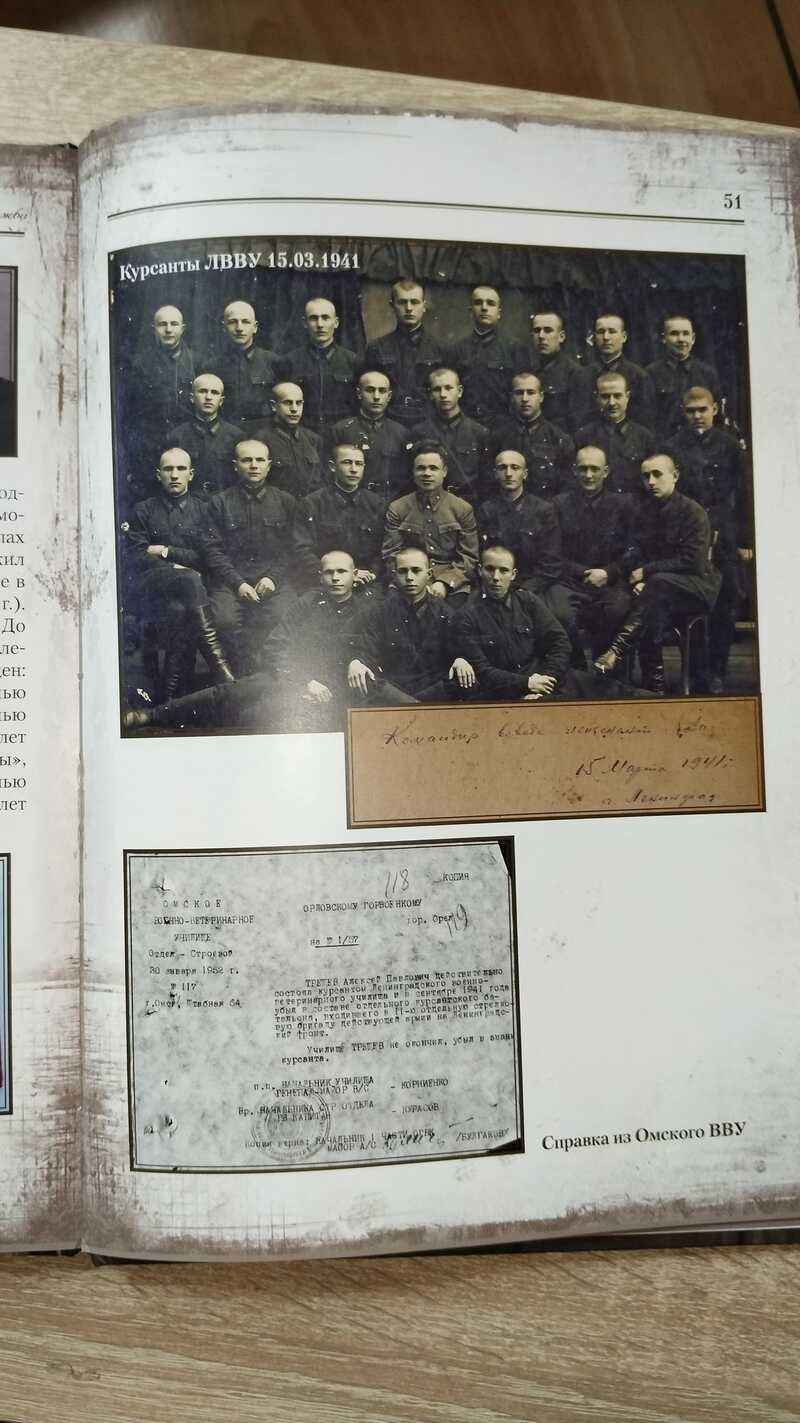 51
од-
мо-
лах
кил
е в
г.).
До
ле-
ден:
нью
нью
лет
ы»,
нью
лет
Курсанты ЛВВУ 15.03.1941
Командир взвода лейтенант
15 Марта 1941 г.
г. Ленинград
118
КОПИЯ
ОМСКОЕ
ВОЕННО-ВЕТЕРИНАРНОЕ
УЧИЛИЩЕ
Отдел - Строевой
30 января 1952 г.
№ 117
г.Омск, Штабная 64
ОРЛОВСКОМУ ГОРВОЕНКОМУ
гор. Орел
119
на № 1/57
ТРЕТЕВ Алексей Павлович действительно
состоял курсантом Ленинградского военно-
ветеринарного училища и в сентябре 1941 года
убыл в составе отдельного курсантского ба-
тальона, входившего в 11-ю отдельную стрелко-
вую бригаду действующей армии на Ленинградс-
кий фронт.
Училище ТРЕТЕВ не окончил, убыл в звани
курсанта.
п.п. НАЧАЛЬНИК УЧИЛИЩА
ГЕНЕРАЛ-МАЙОР В/С - КОРНИЕНКО
Вр. НАЧАЛЬНИКА СТР ОТДЕЛА
КАПИТАН - КУРАСОВ
Копия верна: НАЧАЛЬНИК 1 ЧАСТИ ОГВК
МАЙОР А/С /БУЛГАКОВ/
Справка из Омского ВВУ